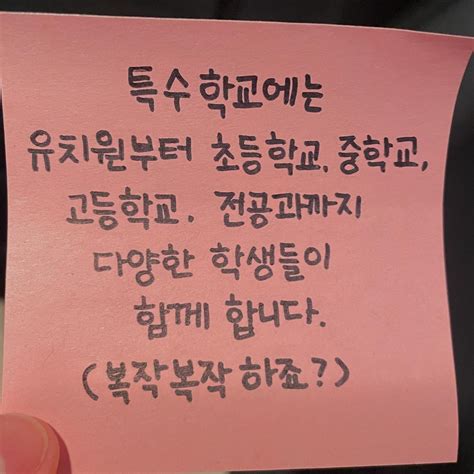 특수학교에는
유치원부터 초등학교, 중학교,
고등학교, 전공과까지
다양한 학생들이
함께 합니다.
(복작복작 하죠?)